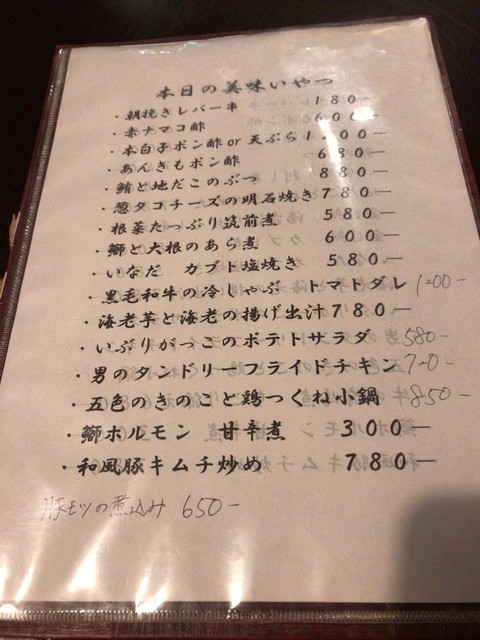 本日の美味いやつ
・朝挽きレバー串 180ー
・赤ナマコ酢 600ー
・本白子ポン酢 or 天ぷら
・あんきもポン酢 680ー
・鮪と地だこのぶつ 880ー
・葱タコチーズの明石焼き 780ー
・根菜たっぷり筑前煮 580ー
・鰤と大根のあら煮 600ー
・いなだ カブト塩焼き 580ー
・黒毛和牛の冷しゃぶ トマトダレ
・海老芋と海老の揚げ出汁 780ー
・いぶりがっこのポテトサラダ 580ー
・男のタンドリーフライドチキン
・五色のきのこと鶏つくね小鍋 850ー
・鰤ホルモン 甘辛煮 300ー
・和風豚キムチ炒め 780ー
豚モツの煮込み 650ー